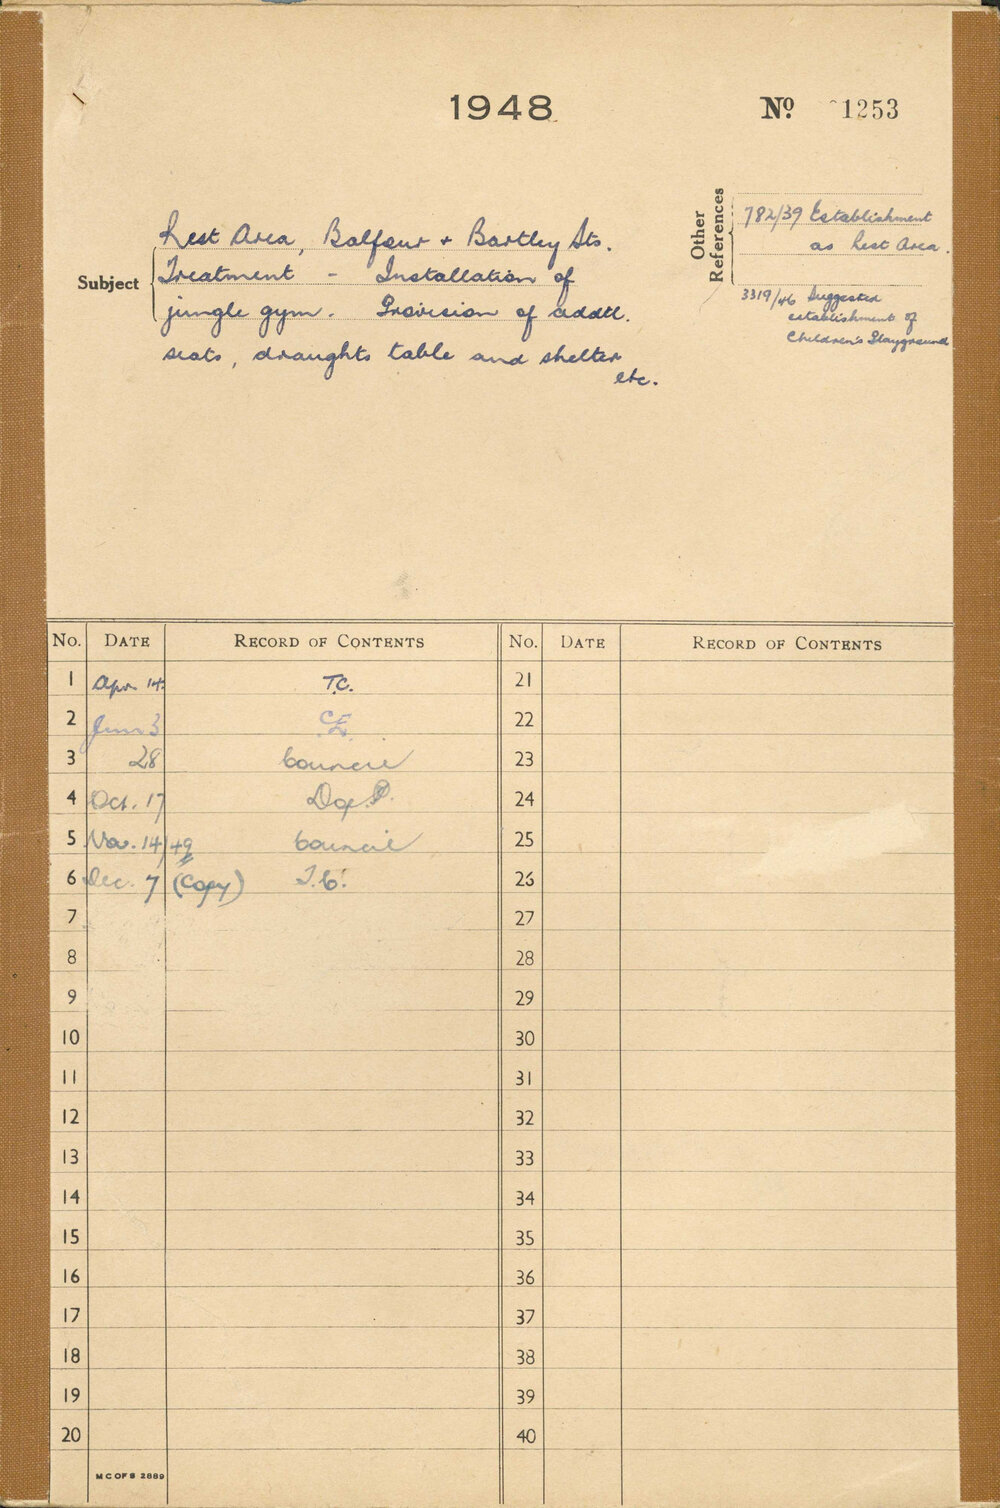 1948
No 1253
Subject
Rest Area, Balfour + Bartley Sts.
Treatment - Installation of
jungle gym. Provision of addtl.
seats, draughts table and shelter
etc.
Other References
782/39 Establishment
as Rest Area.
3319/46 Suggested
establishment of
Children's Playground
No. DATE RECORD OF CONTENTS No. DATE RECORD OF CONTENTS
1 Apr. 14. T.C. 21
2 Jun 3 CE 22
3 28 Council 23
4 Oct. 17 D of P. 24
5 Nov. 14/49 Council 25
6 Dec. 7 (Copy) T.C. 26
7 27
8 28
9 29
10 30
11 31
12 32
13 33
14 34
15 35
16 36
17 37
18 38
19 39
20 40
M C OF S 2889